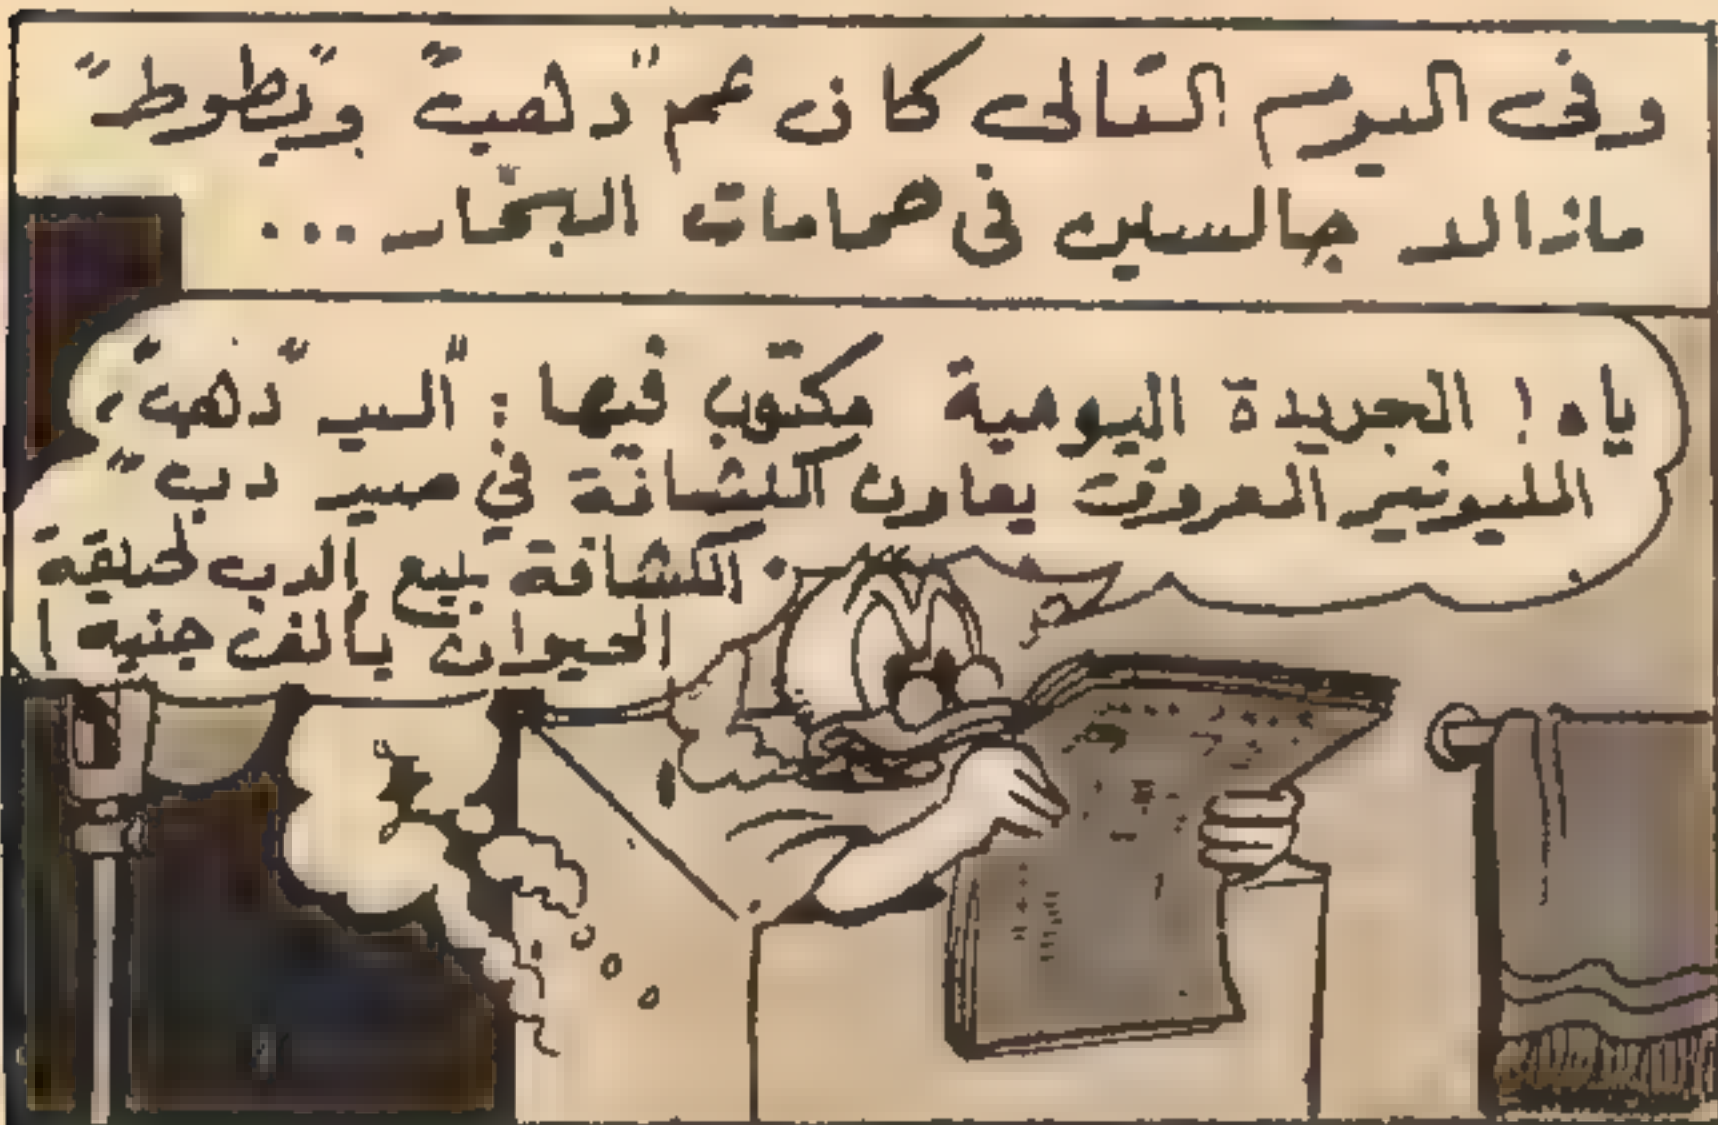 وفى اليوم التالى كان عم "دهب" و"بطوط"
مازالا جالسين فى حمامات البخار ...
ياه ! الجريدة اليومية مكتوب فيها : "السيد "دهب"،
المليونير المعروف يعاون الكشافة في صيد دب"
. الكشافة تبيع الدب لحديقة
الحيوان بألف جنيه !